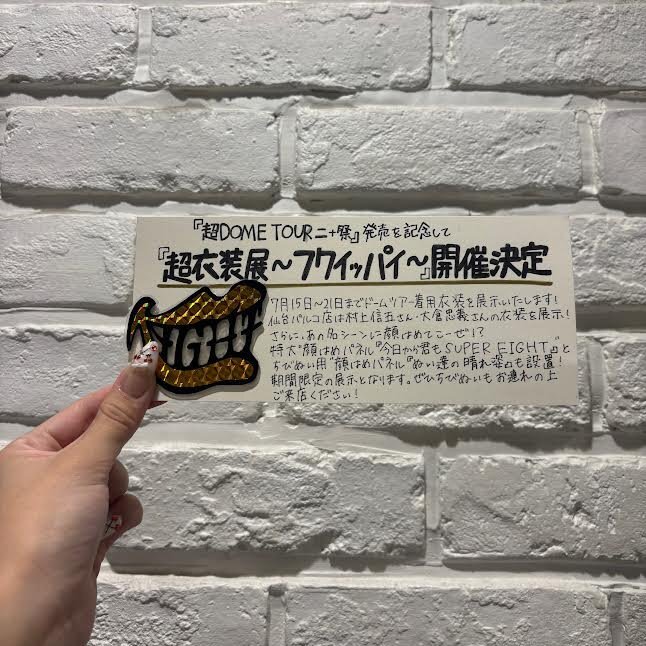 『超DOME TOUR 二十祭』発売を記念して
『超衣装展～フクイッパイ～』開催決定
7月15日～21日までドームツアー着用衣装を展示いたします!
仙台パルコ店は村上信五さん・大倉忠義さんの衣装を展示!
さらに、あの名シーンに顔はめてこーぜ!?
特大"顔はめパネル『今日から君もSUPER EIGHT』と
ちびぬい用"顔はめパネル『ぬい達の晴れ姿』も設置!
期間限定の展示となります。ぜひちびぬいもお連れの上
ご来店ください!
EIGHT